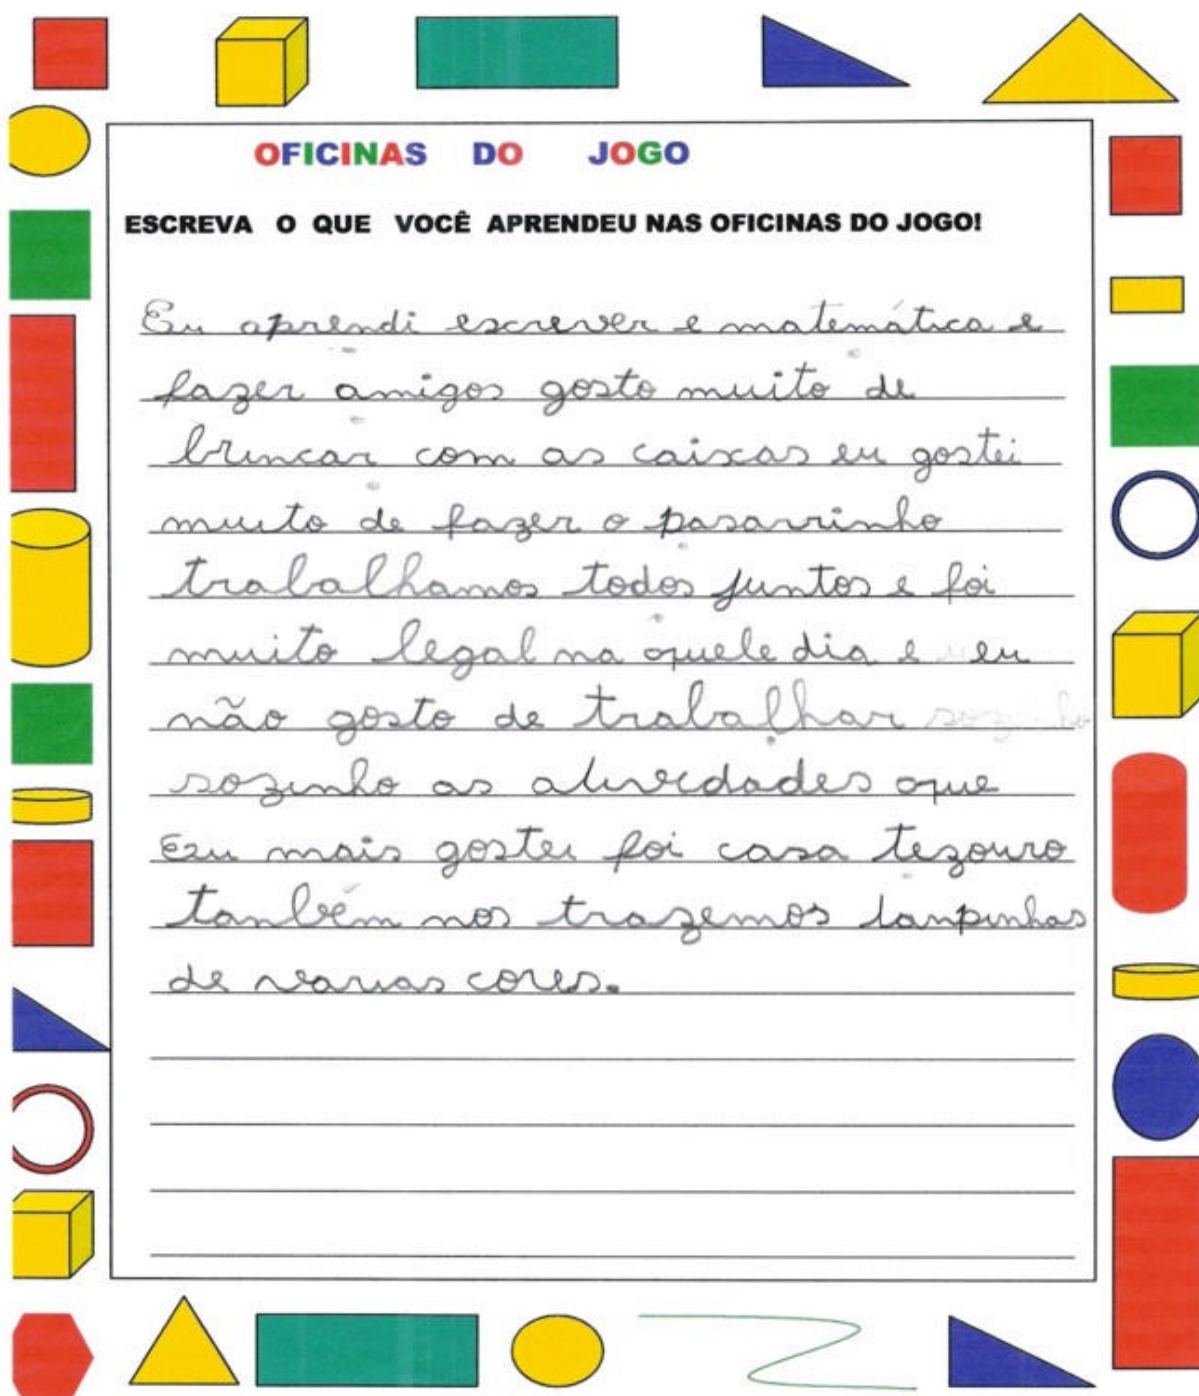 OFICINAS DO JOGO
ESCREVA O QUE VOCÊ APRENDEU NAS OFICINAS DO JOGO!
Eu aprendi escrever e matemática e
fazer amigos gosto muito de
brincar com as caixas eu gostei
muito de fazer o pasarrinho
trabalhamos todos juntos e foi
muito legal na quele dia e eu
não gosto de trabalhar sozinho
sozinho as atividades que
Eu mais gostei foi casa tezouro
tanbém nos trazemos tanpinhas
de varias cores.